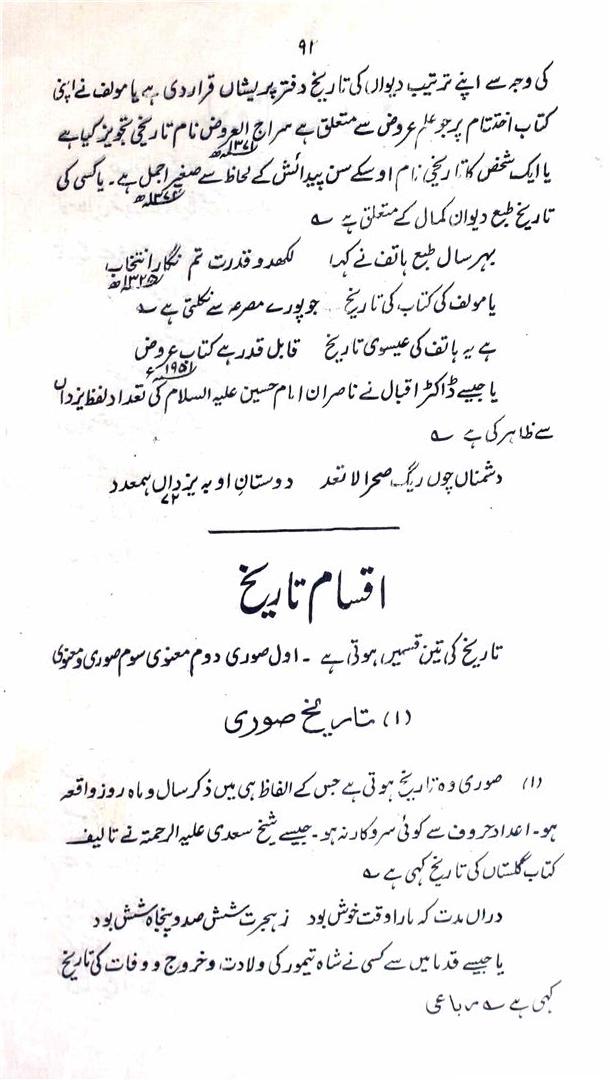 ۹۲
کی وجہ سے اپنے ترتیب دیوان کی تاریخ دفتر پریشاں قرار دی ہے یا مولف نے اپنی
کتاب اختتام پر جو علم عروض سے متعلق ہے سراج العروض نام تاریخی تجویز کیا ہے
۱۳۷۱ھ
یا ایک شخص کا تاریخی نام اوسکے سن پیدائش کے لحاظ سے صغیر اجمل ہے۔ یا کسی کی
تاریخ طبع دیوان کمال کے متعلق ہے ؎
بہر سال طبع ہاتف نے کہا لکھدو قدرت تم نگار انتخاب
۱۳۲۵ھ
یا مولف کی کتاب کی تاریخ جو پورے مصرعہ سے نکلتی ہے ؎
ہے یہ ہاتف کی عیسوی تاریخ قابل قدر ہے کتاب عروض
۱۹۵۱ء
یا جیسے ڈاکٹر اقبال نے ناصران امام حسین علیہ السلام کی تعداد لفظ یزداں
سے ظاہر کی ہے ؎
دشمناں چوں ریگ صحرا لا تعد دوستانِ او بہ یزداں ہمعدد
۷۲
اقسام تاریخ
تاریخ کی تین قسمیں ہوتی ہے ۔ اول صوری دوم معنوی سوم صوری و معنوی
(۱) تاریخ صوری
(۱) صوری وہ تاریخ ہوتی ہے جس کے الفاظ ہی میں ذکر سال و ماہ روز واقعہ
ہو۔ اعداد حروف سے کوئی سروکار نہ ہو۔ جیسے شیخ سعدی علیہ الرحمتہ نے تالیف
کتاب گلستاں کی تاریخ کہی ہے ؎
دراں مدت کہ مارا وقت خوش بود زہجرت شش صد و پنجاہ شش بود
یا جیسے قدما میں سے کسی نے شاہ تیمور کی ولادت و خروج و وفات کی تاریخ
کہی ہے ؎ رباعی